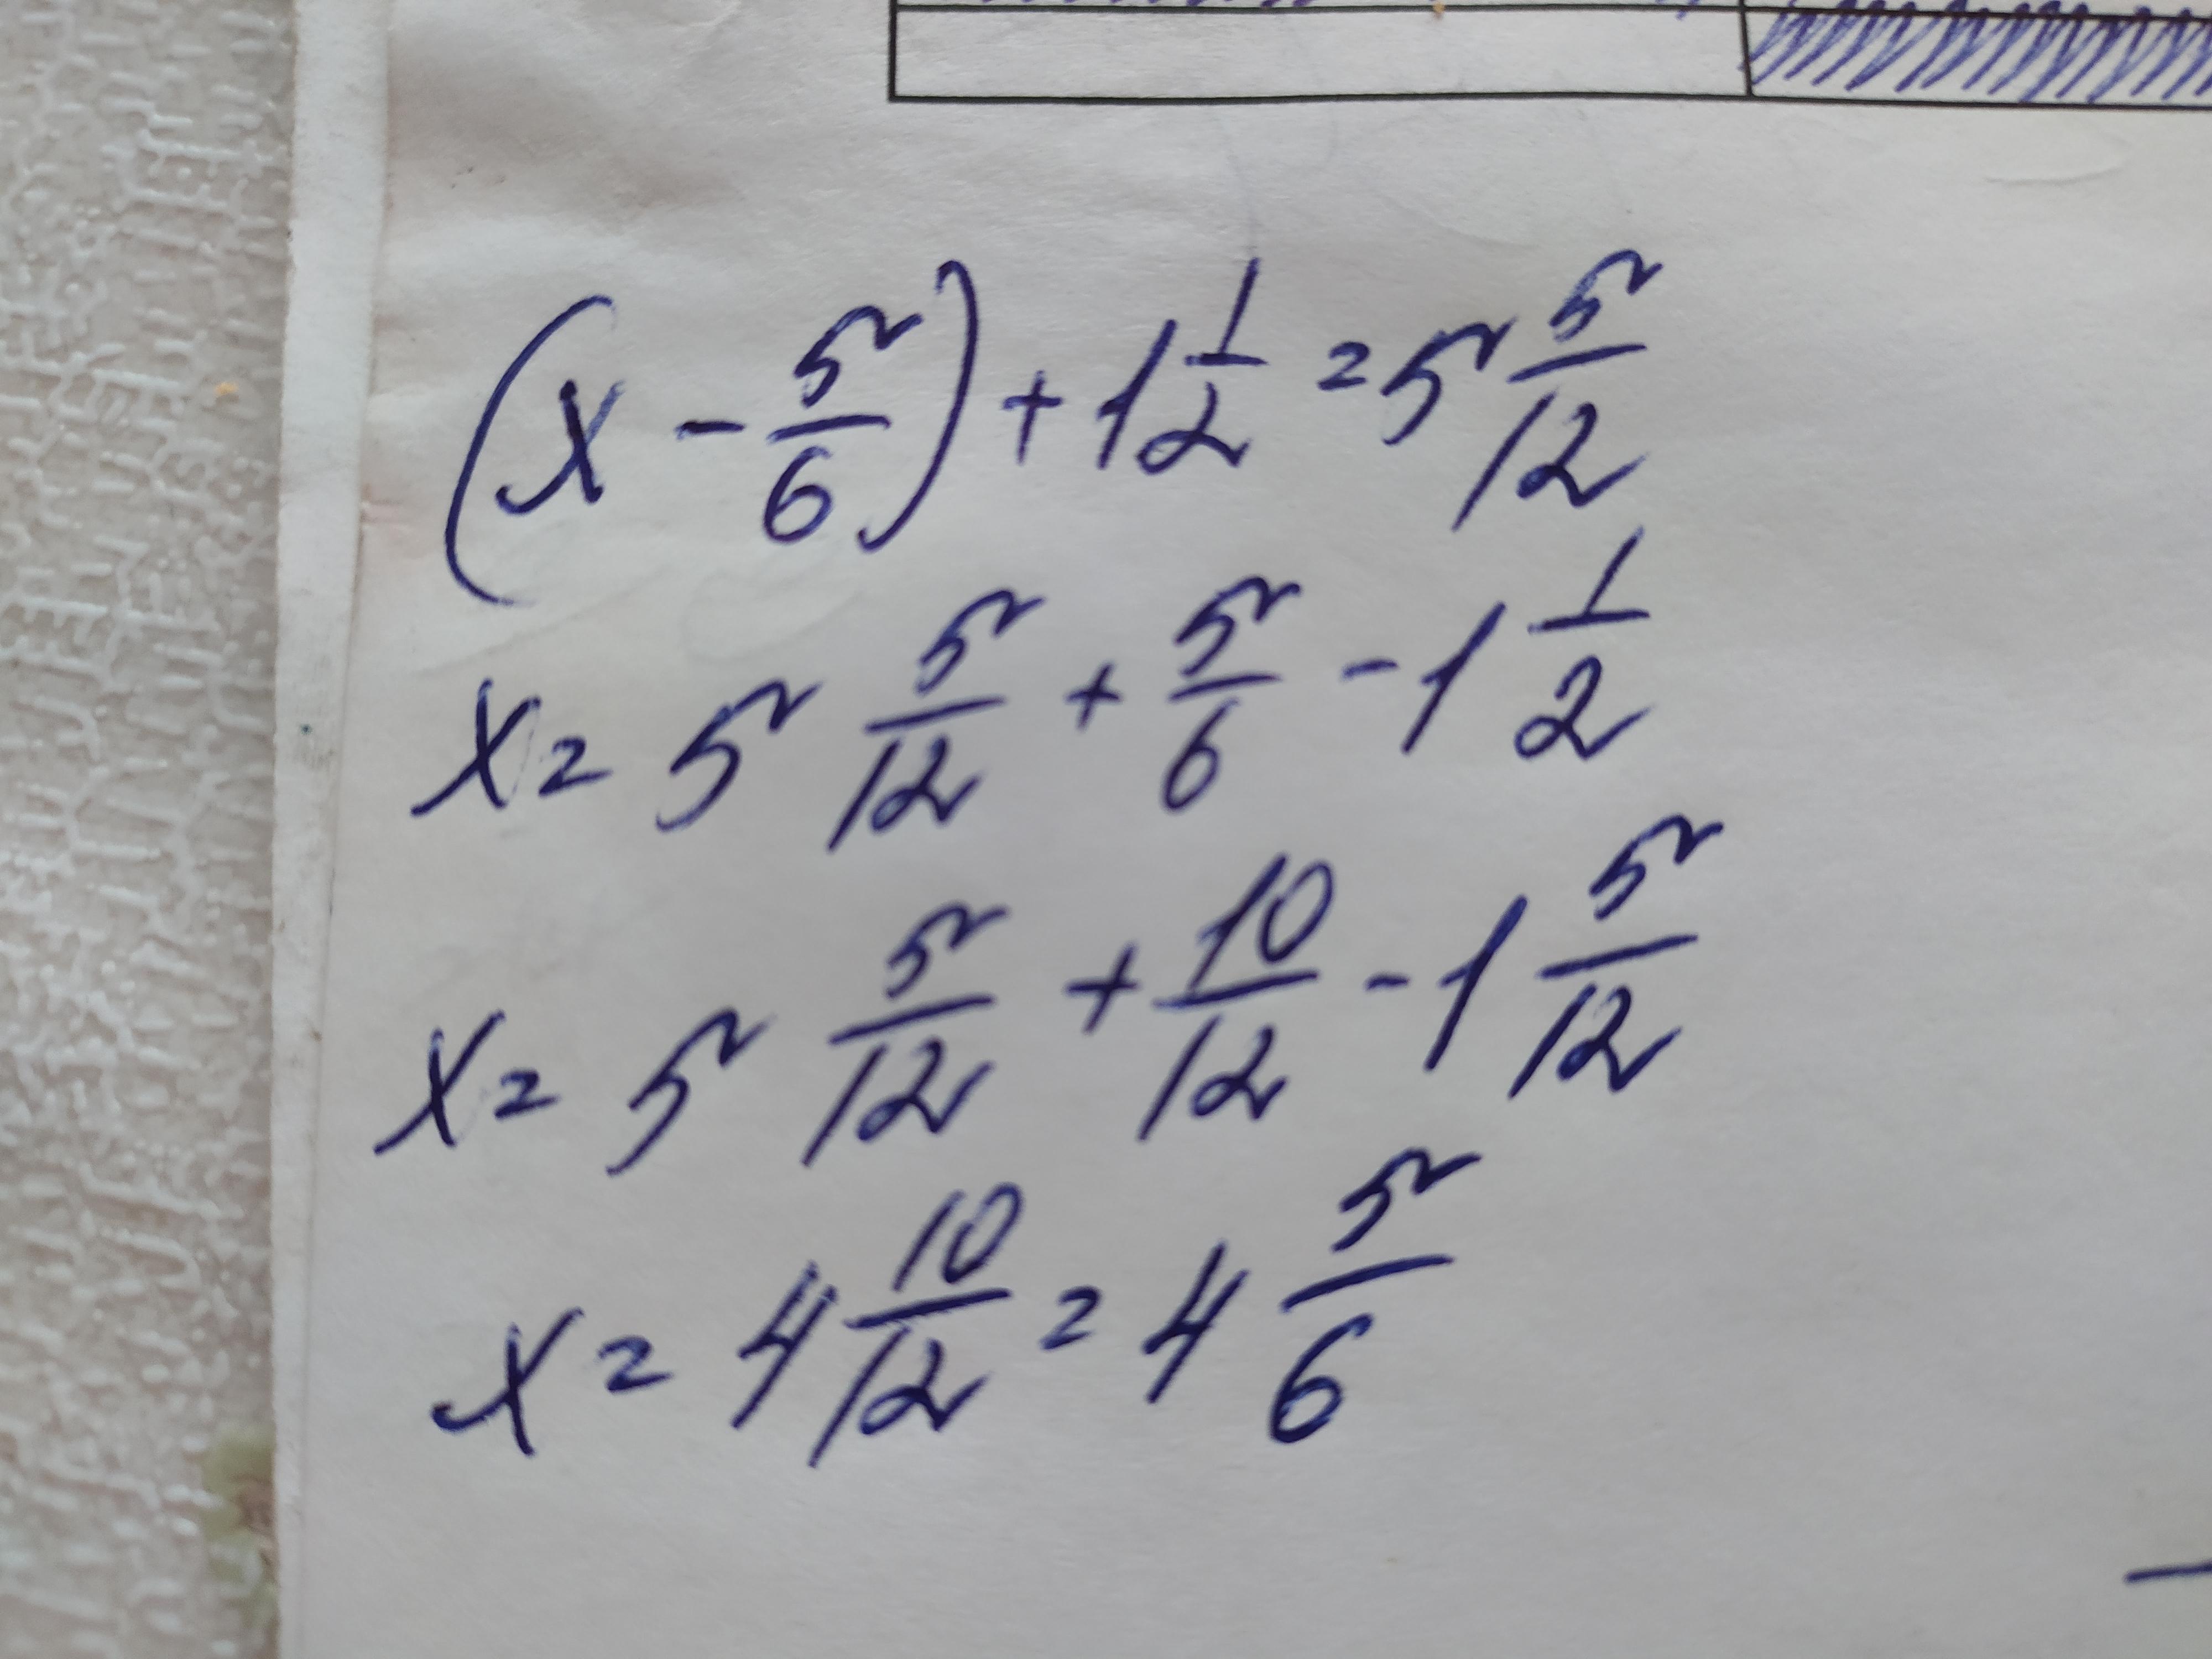 (x - 5/6) + 1 1/2 = 5 5/12
x = 5 5/12 + 5/6 - 1 1/2
x = 5 5/12 + 10/12 - 1 5/12
x = 4 10/12 = 4 5/6